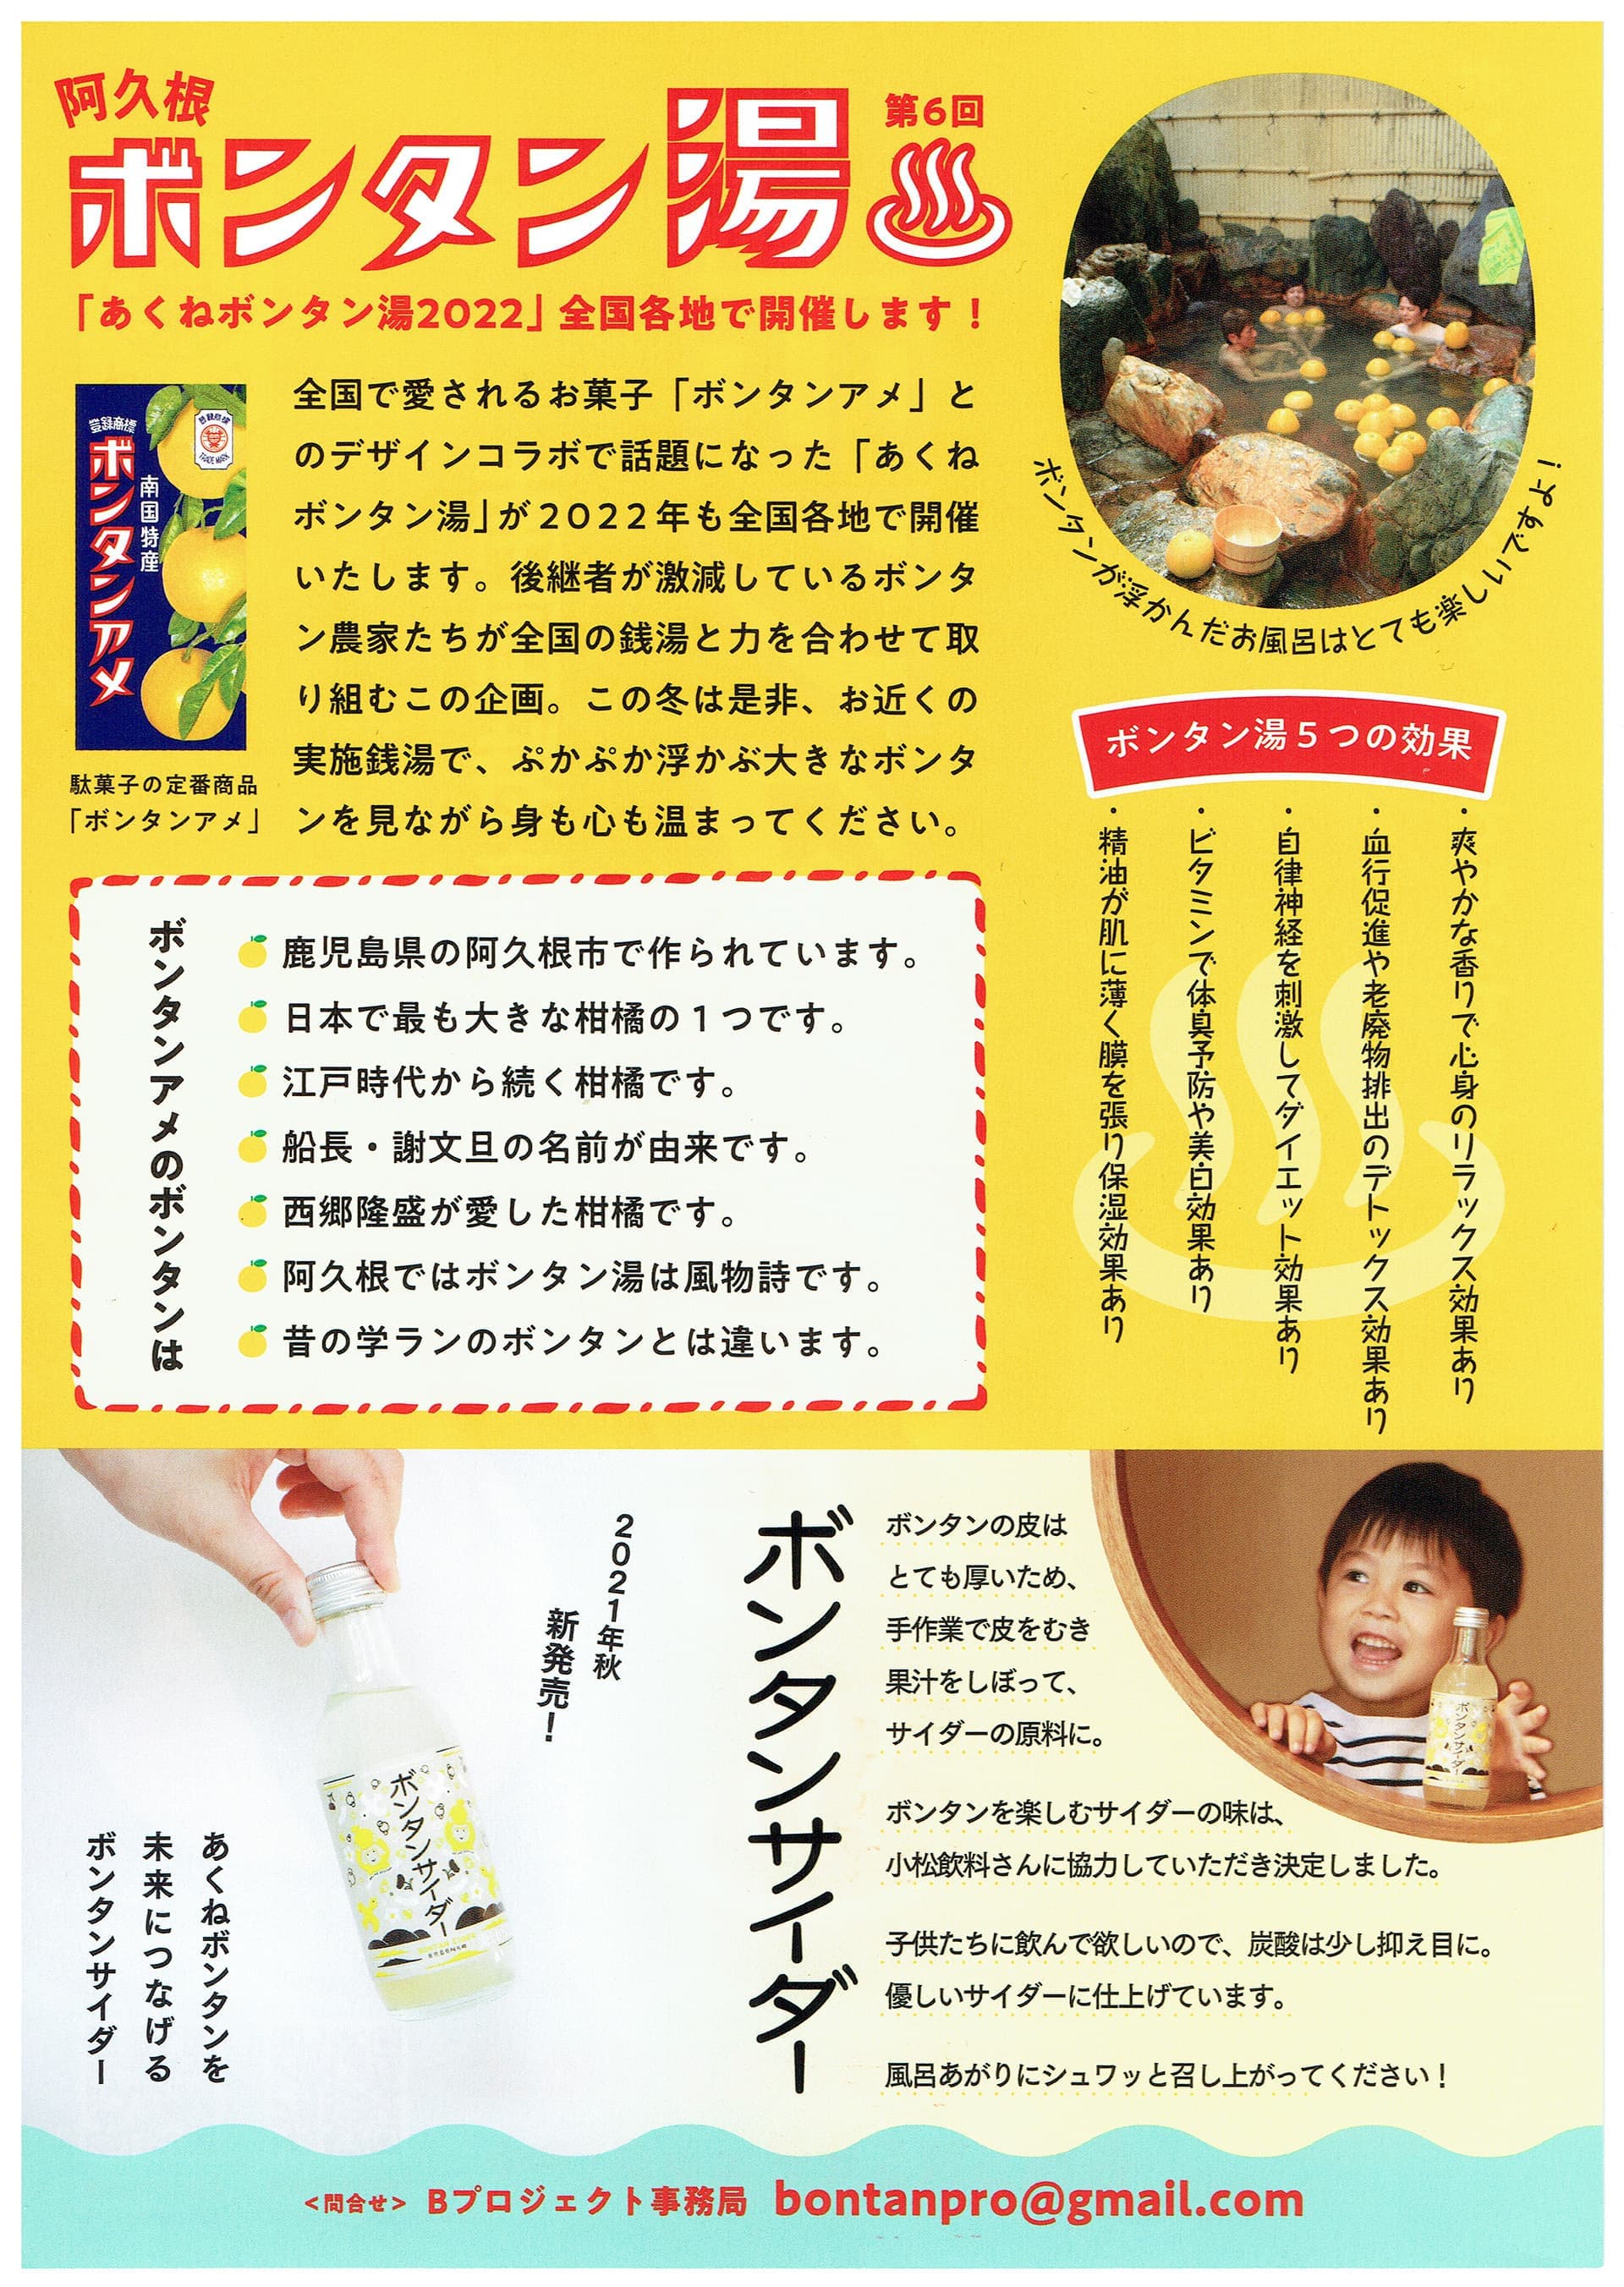 阿久根
ボンタン湯
第6回
「あくねボンタン湯2022」全国各地で開催します！
登録商標
ボンタンアメ
南国特産
TRADE MARK
駄菓子の定番商品
「ボンタンアメ」
全国で愛されるお菓子「ボンタンアメ」と
のデザインコラボで話題になった「あくね
ボンタン湯」が2022年も全国各地で開催
いたします。後継者が激減しているボンタ
ン農家たちが全国の銭湯と力を合わせて取
り組むこの企画。この冬は是非、お近くの
実施銭湯で、ぷかぷか浮かぶ大きなボンタ
ンを見ながら身も心も温まってください。
ボンタンが浮かんだお風呂はとても楽しいですよ！
ボンタン湯5つの効果
・爽やかな香りで心身のリラックス効果あり
・血行促進や老廃物排出のデトックス効果あり
・自律神経を刺激してダイエット効果あり
・ビタミンで体臭予防や美白効果あり
・精油が肌に薄く膜を張り保湿効果あり
ボンタンアメのボンタンは
鹿児島県の阿久根市で作られています。
日本で最も大きな柑橘の1つです。
江戸時代から続く柑橘です。
船長・謝文旦の名前が由来です。
西郷隆盛が愛した柑橘です。
阿久根ではボンタン湯は風物詩です。
昔の学ランのボンタンとは違います。
2021年秋
新発売！
ボンタンサイダー
あくねボンタンを
未来につなげる
ボンタンサイダー
ボンタンサイダー
ボンタンの皮は
とても厚いため、
手作業で皮をむき
果汁をしぼって、
サイダーの原料に。
ボンタンを楽しむサイダーの味は、
小松飲料さんに協力していただき決定しました。
子供たちに飲んで欲しいので、炭酸は少し抑え目に。
優しいサイダーに仕上げています。
風呂あがりにシュワッと召し上がってください！
ボンタンサイダー
<問合せ> Bプロジェクト事務局 bontanpro@gmail.com